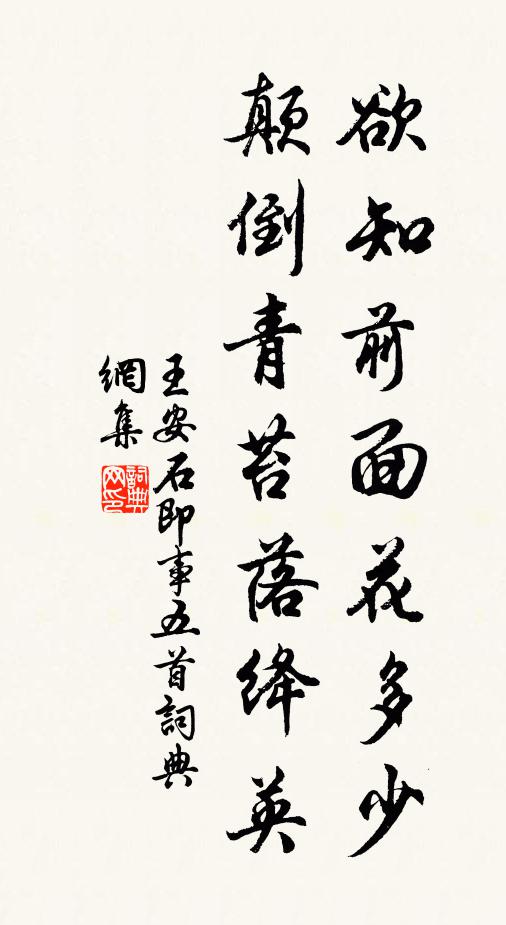 欲知前面花多少
顛倒青苔落絳英
王安石即事五首詞典
網集
詞典網印